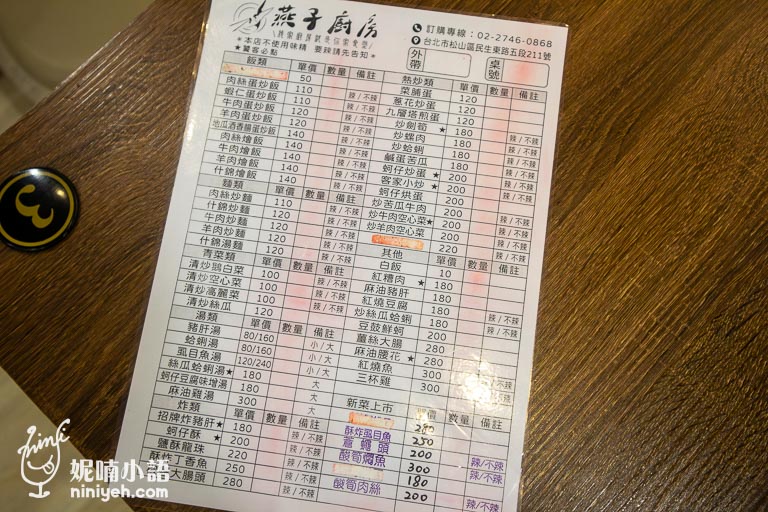 燕子廚房
訂購專線：02-2746-0868
台北市松山區民生東路五段211號
*本店不使用味精 要辣請先告知*
★饕客必點
外帶
桌號
飯類 單價 數量 備註
50
肉絲蛋炒飯 110 辣/不辣
蝦仁蛋炒飯 110 辣/不辣
牛肉蛋炒飯 120 辣/不辣
羊肉蛋炒飯 120 辣/不辣
地瓜酒香腸蛋炒飯 140 辣/不辣
肉絲燴飯 140 辣/不辣
牛肉燴飯 140 辣/不辣
羊肉燴飯 140 辣/不辣
什錦燴飯 140 辣/不辣
麵類 單價 數量 備註
肉絲炒麵 110 辣/不辣
什錦炒麵 120 辣/不辣
牛肉炒麵 120 辣/不辣
羊肉炒麵 120 辣/不辣
什錦湯麵 120 辣/不辣
青菜類 單價 數量 備註
清炒鵝白菜 100 辣/不辣
清炒空心菜 100 辣/不辣
清炒高麗菜 100 辣/不辣
清炒絲瓜 120 辣/不辣
湯類 單價 數量 備註
豬肝湯 80/160 小/大
蛤蜊湯 80/160 小/大
虱目魚湯 120/240 小/大
絲瓜蛤蜊湯★ 180 大
蚵仔豆腐味增湯 180 大
麻油雞湯 300 大
炸類 單價 數量 備註
招牌炸豬肝★ 180 辣/不辣
蚵仔酥★ 200 辣/不辣
鹽酥龍珠 220 辣/不辣
酥炸丁香魚 250 辣/不辣
大腸頭 280 辣/不辣
熱炒類 單價 數量 備註
菜脯蛋 120
蔥花炒蛋 120
九層塔煎蛋 120
炒劍筍★ 180 辣/不辣
炒螺肉 180 辣/不辣
炒蛤蜊 180 辣/不辣
鹹蛋苦瓜 180 辣/不辣
蚵仔炒蛋★ 200 辣/不辣
客家小炒★ 200 辣/不辣
蚵仔烘蛋 200
炒苦瓜牛肉 200 辣/不辣
炒牛肉空心菜★ 200 辣/不辣
炒羊肉空心菜 200 辣/不辣
220 辣/不辣
其他 單價 數量 備註
白飯 10
紅糟肉★ 180
麻油豬肝 180
紅燒豆腐 180 辣/不辣
炒絲瓜蛤蜊 180 辣/不辣
豆鼓鮮蚵 200 辣/不辣
薑絲大腸 280
麻油腰花★ 280
紅燒魚 300 辣/不辣
三杯雞 300 辣/不辣
新菜上市 單價 數量 備註
280
酥炸虱目魚 250
300 辣/不辣
180
酸筍肉絲 200 辣/不辣
3
nini
妮喃小語
niniyeh.com